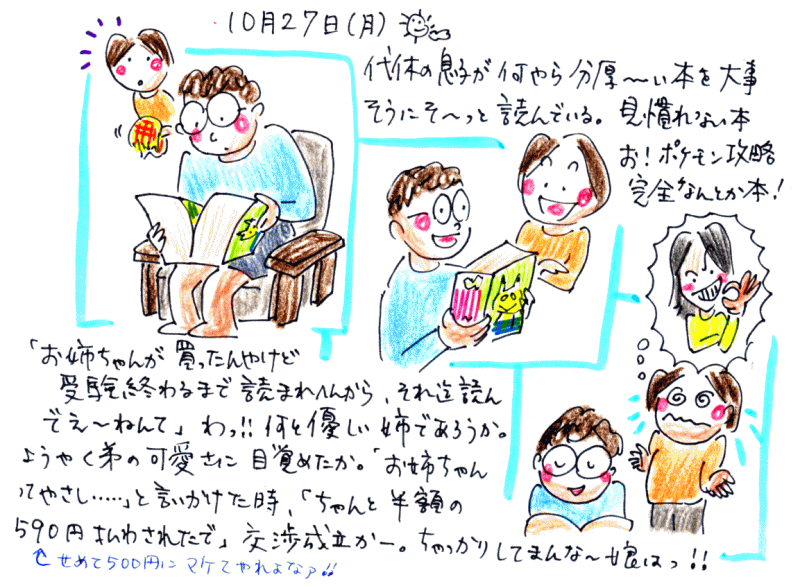 10月27日(月)
代休の息子が何やら分厚〜い本を大事
そうにそ〜っと読んでいる。見慣れない本
お!ポケモン攻略
完全なんとか本!
「お姉ちゃんが買ったんやけど
受験終わるまで読まれへんから、それ迄読ん
でえ〜ねんて」わっ!!何と優しい姉であろうか。
ようやく弟の可愛さに目覚めたか。「お姉ちゃん
ってやさし……」と言いかけた時、「ちゃんと半額の
590円払わされたで」交渉成立かー。ちゃっかりしてまんな〜娘はっ!!
せめて500円にマケてやれよなァ!!